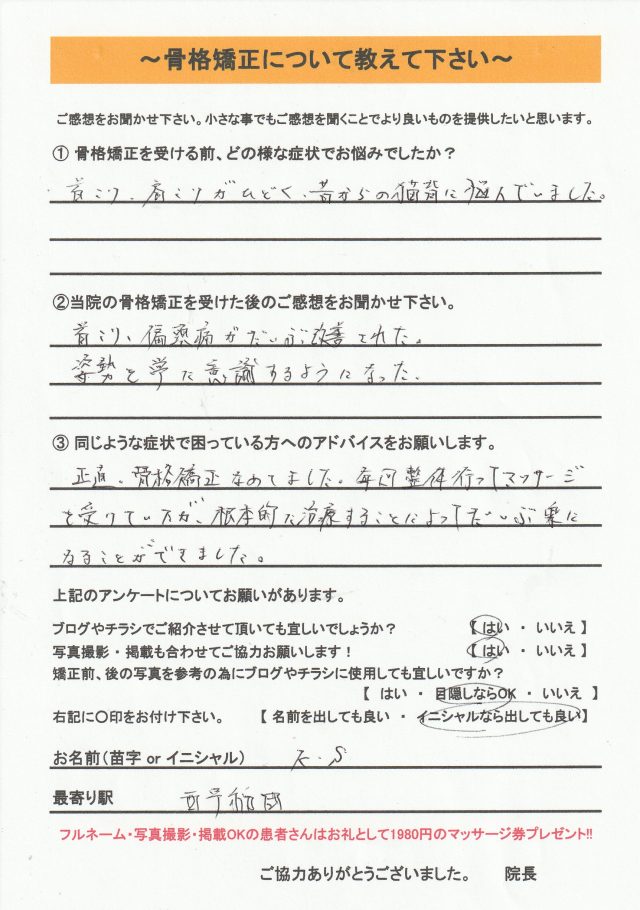 ～骨格矯正について教えて下さい～
ご感想をお聞かせ下さい。小さな事でもご感想を聞くことでより良いものを提供したいと思います。
① 骨格矯正を受ける前、どの様な症状でお悩みでしたか？
首こり、肩こりがひどく、昔からの猫背に悩んでいました。
②当院の骨格矯正を受けた後のご感想をお聞かせ下さい。
首こり、偏頭痛がだいぶ改善された。
姿勢を常に意識するようになった。
③ 同じような症状で困っている方へのアドバイスをお願いします。
正直、骨格矯正なめてました。毎回整体行ってマッサージ
を受けていたが、根本的な治療することによってだいぶ楽に
なることができました。
上記のアンケートについてお願いがあります。
ブログやチラシでご紹介させて頂いても宜しいでしょうか？ 【 はい ・ いいえ 】
写真撮影・掲載も合わせてご協力お願いします！ 【 はい ・ いいえ 】
矯正前、後の写真を参考の為にブログやチラシに使用しても宜しいですか？
【 はい ・ 目隠しならOK ・ いいえ 】
右記に〇印をお付け下さい。 【 名前を出しても良い ・ イニシャルなら出しても良い】
お名前（苗字 or イニシャル） K.S
最寄り駅
フルネーム・写真撮影・掲載OKの患者さんはお礼として1980円のマッサージ券プレゼント!!
ご協力ありがとうございました。 院長